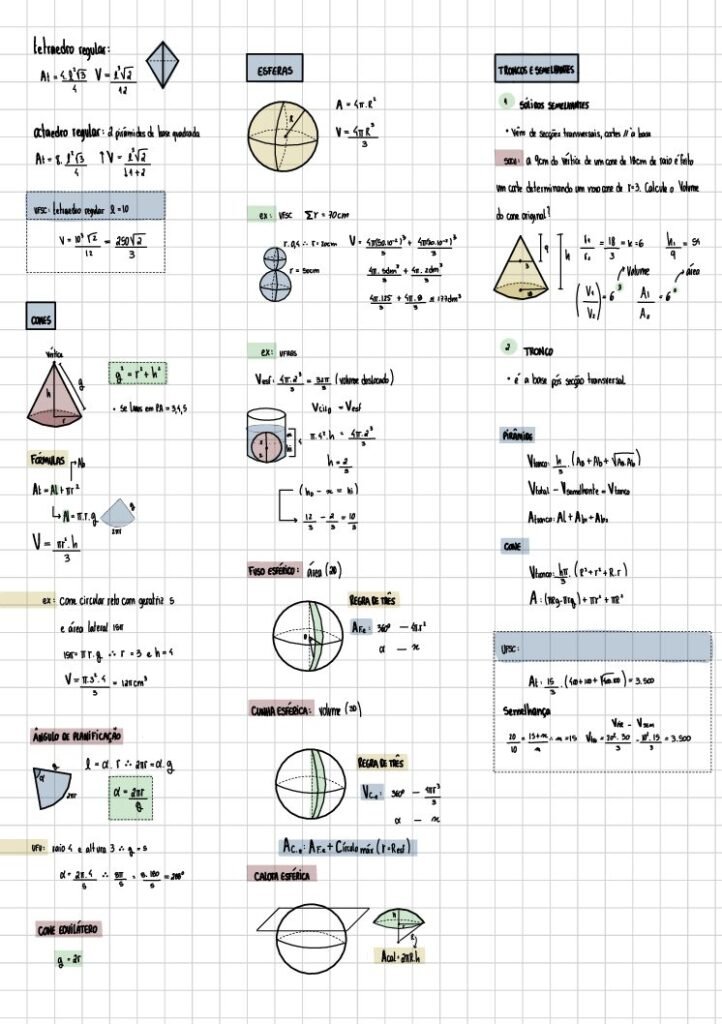 tetraedro regular:
At = 4.l²√3/4 V = l³√2/12
octaedro regular: 2 pirâmides de base quadrada
At = 8. l²√3/4
UFSC: tetraedro regular l = 10
V = 10³√2/12 = 250√2/3
CONES
vértice
g
h
r
g² = r² + h²
FÓRMULAS
Ab
At = Al + πr²
Al = π.r.g
g
2πr
V = πr².h/3
ex: Cone circular reto com geratriz 5
e área lateral 15π
15π = π r.g ∴ r = 3 e h = 4
V = π.3².4/3 = 12π cm³
ÂNGULO DE PLANIFICAÇÃO
g
α
2πr
l = α.r ∴ 2πr = α.g
α = 2πr/g
UFU: raio 4 e altura 3 ∴ g = 5
α = 2π.4/5 ∴ 8π/5 = 8.180/5 = 288°
CONE EQUILÁTERO
g = 2r
ESFERAS
R
A = 4π.R²
V = 4πR³/3
ex: UFSC Σr = 70cm
r = 50cm
ex: UFRGS
Vesf: 4π.2³/3 = 32π/3 (volume deslocado)
Vcil = Vesf
π.4².h = 4π.2³/3
h = 2/3
12/3 - 2/3 = 10/3
FUSO ESFÉRICO: área (2D)
REGRA DE TRÊS
AF.e: 360° — 4πr²
α — x
CUNHA ESFÉRICA: volume (3D)
REGRA DE TRÊS
VC.e: 360° — 4πr³/3
α — x
AC.e: AF.e + Círculo máx (r = Resf)
CALOTA ESFÉRICA
h
r
R
Acal = 2πR.h
TRONCOS E SEMELHANTES
1 SÓLIDOS SEMELHANTES
• Vêm de secções transversais, cortes // a base
a 9cm do vértice de um cone de 18cm de raio é feito
um corte determinando um novo cone de r=3. Calcule o Volume
do cone original?
3
18
9
h
r₁/r₂ = 18/3 = k = 6 h₁/9 = 54
Volume
área
(V₁/V₂) = 6³ A₁/A₂ = 6²
2 TRONCO
• é a base pós secção transversal
PIRÂMIDE
Vtronco: h/3 . (AB + Ab + √AB.Ab)
Vtotal - Vsemelhante = Vtronco
Atronco: Al + Ab₁ + Ab₂
CONE
Vtronco: hπ/3 . (R² + r² + R.r)
A: (πRg - πrg) + πr² + πR²
UFSC:
At: 15/3 . (400 + 100 + √400.100) = 3.500
Semelhança
20/10 = 15+x/x ∴ x = 15 = 20².30/3 - 10².15/3 = 3.500